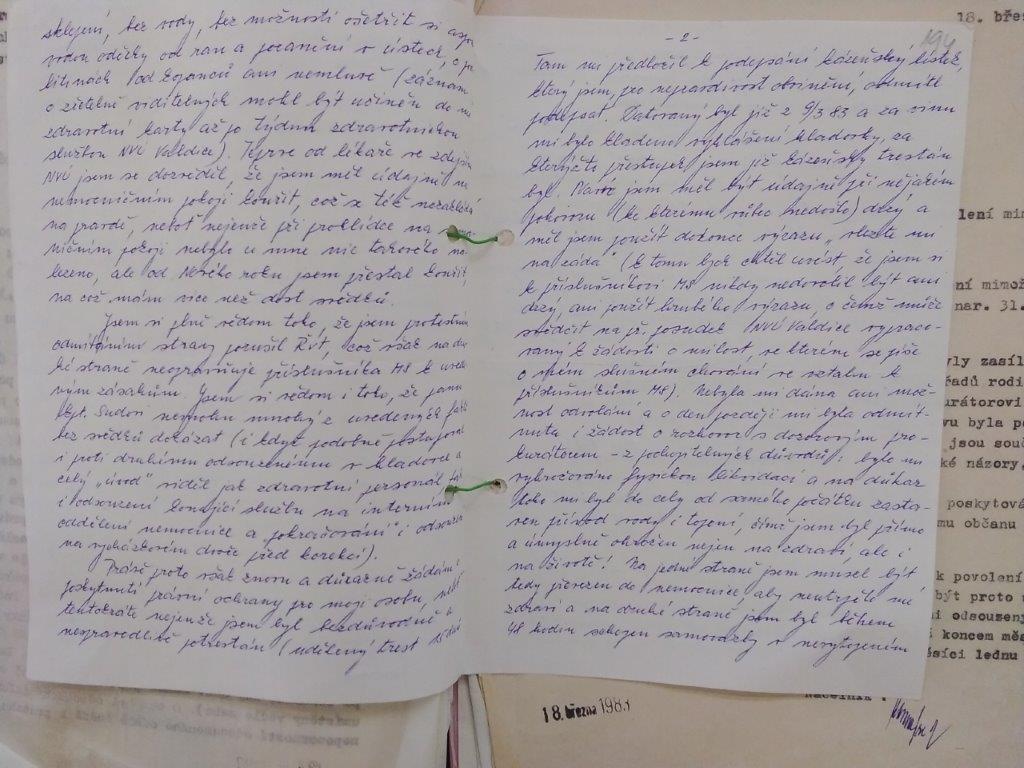 sklepení, bez vody, bez možnosti ošetřit si aspoň
vodou oděrky od ran a
o zřetelně viditelných mohl být učiněn do mé
zdravotní karty až po týdnu zdravotnickou
službou NVÚ Valdice). Teprve od lékaře ve zdejším
NVÚ jsem se dozvěděl, že jsem měl údajně na
nemocničním pokoji kouřit, což se též nezakládá
na pravdě, neboť nejenže při prohlídce na
ničním pokoji nebylo u mne nic takového na-
lezeno, ale od Nového roku jsem přestal kouřit,
na což mám více než dost svědků.
Jsem si plně vědom toho, že jsem protestním
odmítáním stravy porušil ŘVT, což však na dru-
hé straně neopravňuje příslušníka MS k
vým zásahům. Jsem si vědom i toho, že
nemohu mnohý z uvedených faktů
bez svědků dokázat (i když podobně postupoval
i proti druhému odsouzenému v hladovce a
celý „úvod" viděl jak zdravotní personál
i odsouzení konající službu na interním
oddělení nemocnice a „pokračování" i odsouzení
na vycházkovém dvoře před korekcí).
Právě proto však znovu a důrazně žádám o
poskytnutí právní ochrany pro moji osobu, neboť
tentokráte nejenže jsem byl bezdůvodně a
nespravedlivě potrestán (udělený trest
- 2 -
194
Tam mi předložil k podepsání kázeňský lístek,
který jsem, pro nepravdivost obvinění, odmítl
podepsat. Datovaný byl již z 9/3 83 a za vinu
mi bylo kladeno vyhlášení hladovky, za
kterýžto přestupek jsem již kázeňsky trestán
byl. Navíc jsem měl být údajně při nějakém
pohovoru (ke kterému vůbec nedošlo) drzý a
měl jsem použít dokonce výrazu „vlezte mi
na záda" (k tomu bych chtěl uvést, že jsem si
k příslušníkovi MS nikdy nedovolil být ani
drzý, ani použít hrubého výrazu, o čemž může
svědčit na př. posudek NVÚ Valdice vypraco-
vaný k žádosti o milost, ve kterém se píše
o mém slušném chování ve vztahu k
příslušníkům MS). Nebyla mi dána ani mož-
nost odvolání a o den později mi byla odmít-
nuta i žádost o rozhovor s dozorovým pro-
kurátorem - z pochopitelných důvodů: bylo mi
vyhrožováno fysickou likvidací a na důkaz
toho mi byl do cely od samého počátku zasta-
ven přívod vody i topení, čímž jsem byl přímo
a úmyslně ohrožen nejen na zdraví, ale i
na životě! Na jedné straně jsem musel být
tedy převezen do nemocnice, aby neutrpělo mé
zdraví a na druhé straně jsem byl během
48 hodin schopen samovazby v nevytopeném
18. břez
lení mim
ní mimoř
nar. 31.
yly zasíl
řadů rodi
urátorovi
vu byla p
jsou souč
ké názory,
poskytová
mu občanu
k povolení
být proto
i odsouzený
í koncem mě
ěsíci lednu
Náčelník :
18. března 1983